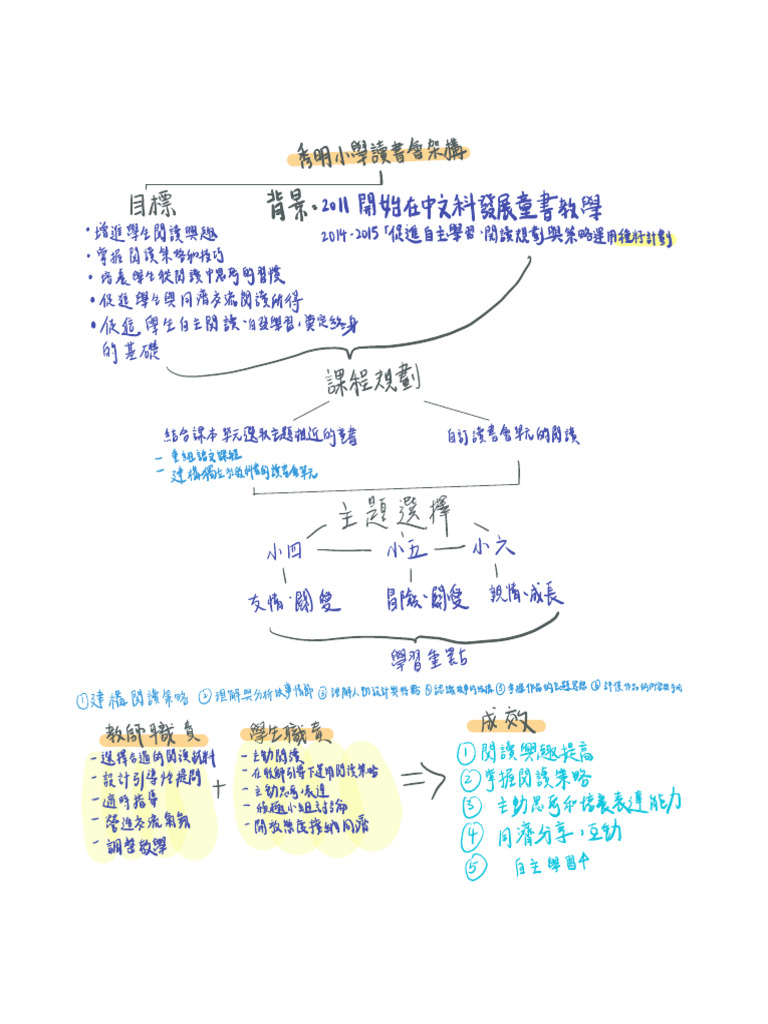 秀明小學讀書會架構
目標
背景：2011 開始在中文科發展童書教學
2014-2015「促進自主學習：閱讀規劃與策略運用種籽計劃
• 增進學生閱讀興趣
• 掌握閱讀策略和技巧
• 培養學生從閱讀中思考的習慣
• 促進學生與同濟交流閱讀所得
• 促進學生自主閱讀、自發學習，奠定終身
的基礎
課程規劃
結合課本單元選取主題相近的童書
自訂讀書會單元的閱讀
- 重組語文課程
- 建構獨立於教科書的讀書會單元
主題選擇
小四 小五 小六
友情、關愛 冒險、關愛 親情、成長
學習重點
①建構閱讀策略 ②理解與分析故事情節 ③理解人物設計與特點 ④認識故事的結構 ⑤掌握作品的主題思想 ⑥評價作品的內容與手法
教師職責
- 選擇合適的閱讀材料
- 設計引導性提問
- 適時指導
- 營造交流氣氛
- 調整教學
+
學生職責
- 主動閱讀
- 在教師引導下運用閱讀策略
- 主動思考、表達
- 積極小組討論
- 開放態度接納同濟
成效
① 閱讀興趣提高
② 掌握閱讀策略
③ 主動思考和培養表達能力
④ 同濟分享，互助
⑤ 自主學習↑